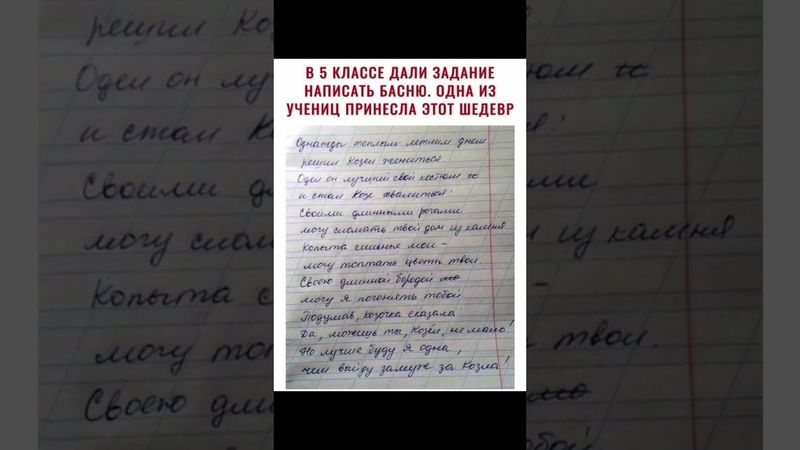 В 5 КЛАССЕ ДАЛИ ЗАДАНИЕ
НАПИСАТЬ БАСНЮ. ОДНА ИЗ
УЧЕНИЦ ПРИНЕСЛА ЭТОТ ШЕДЕВР
Однажды теплым летним днем
решил Козел жениться
Одел он лучший свой костюм
и стал Козе хвалиться:
Своими длинными рогами
могу сломать твой дом из камня
Копыта сильные мои -
могу топтать цветы твои.
Своею длинной бородой
могу я погонять тобой
Подумав, козочка сказала
Да, можешь ты, Козёл, не мало!
Но лучше буду я одна,
чем выйду замуж за Козла!